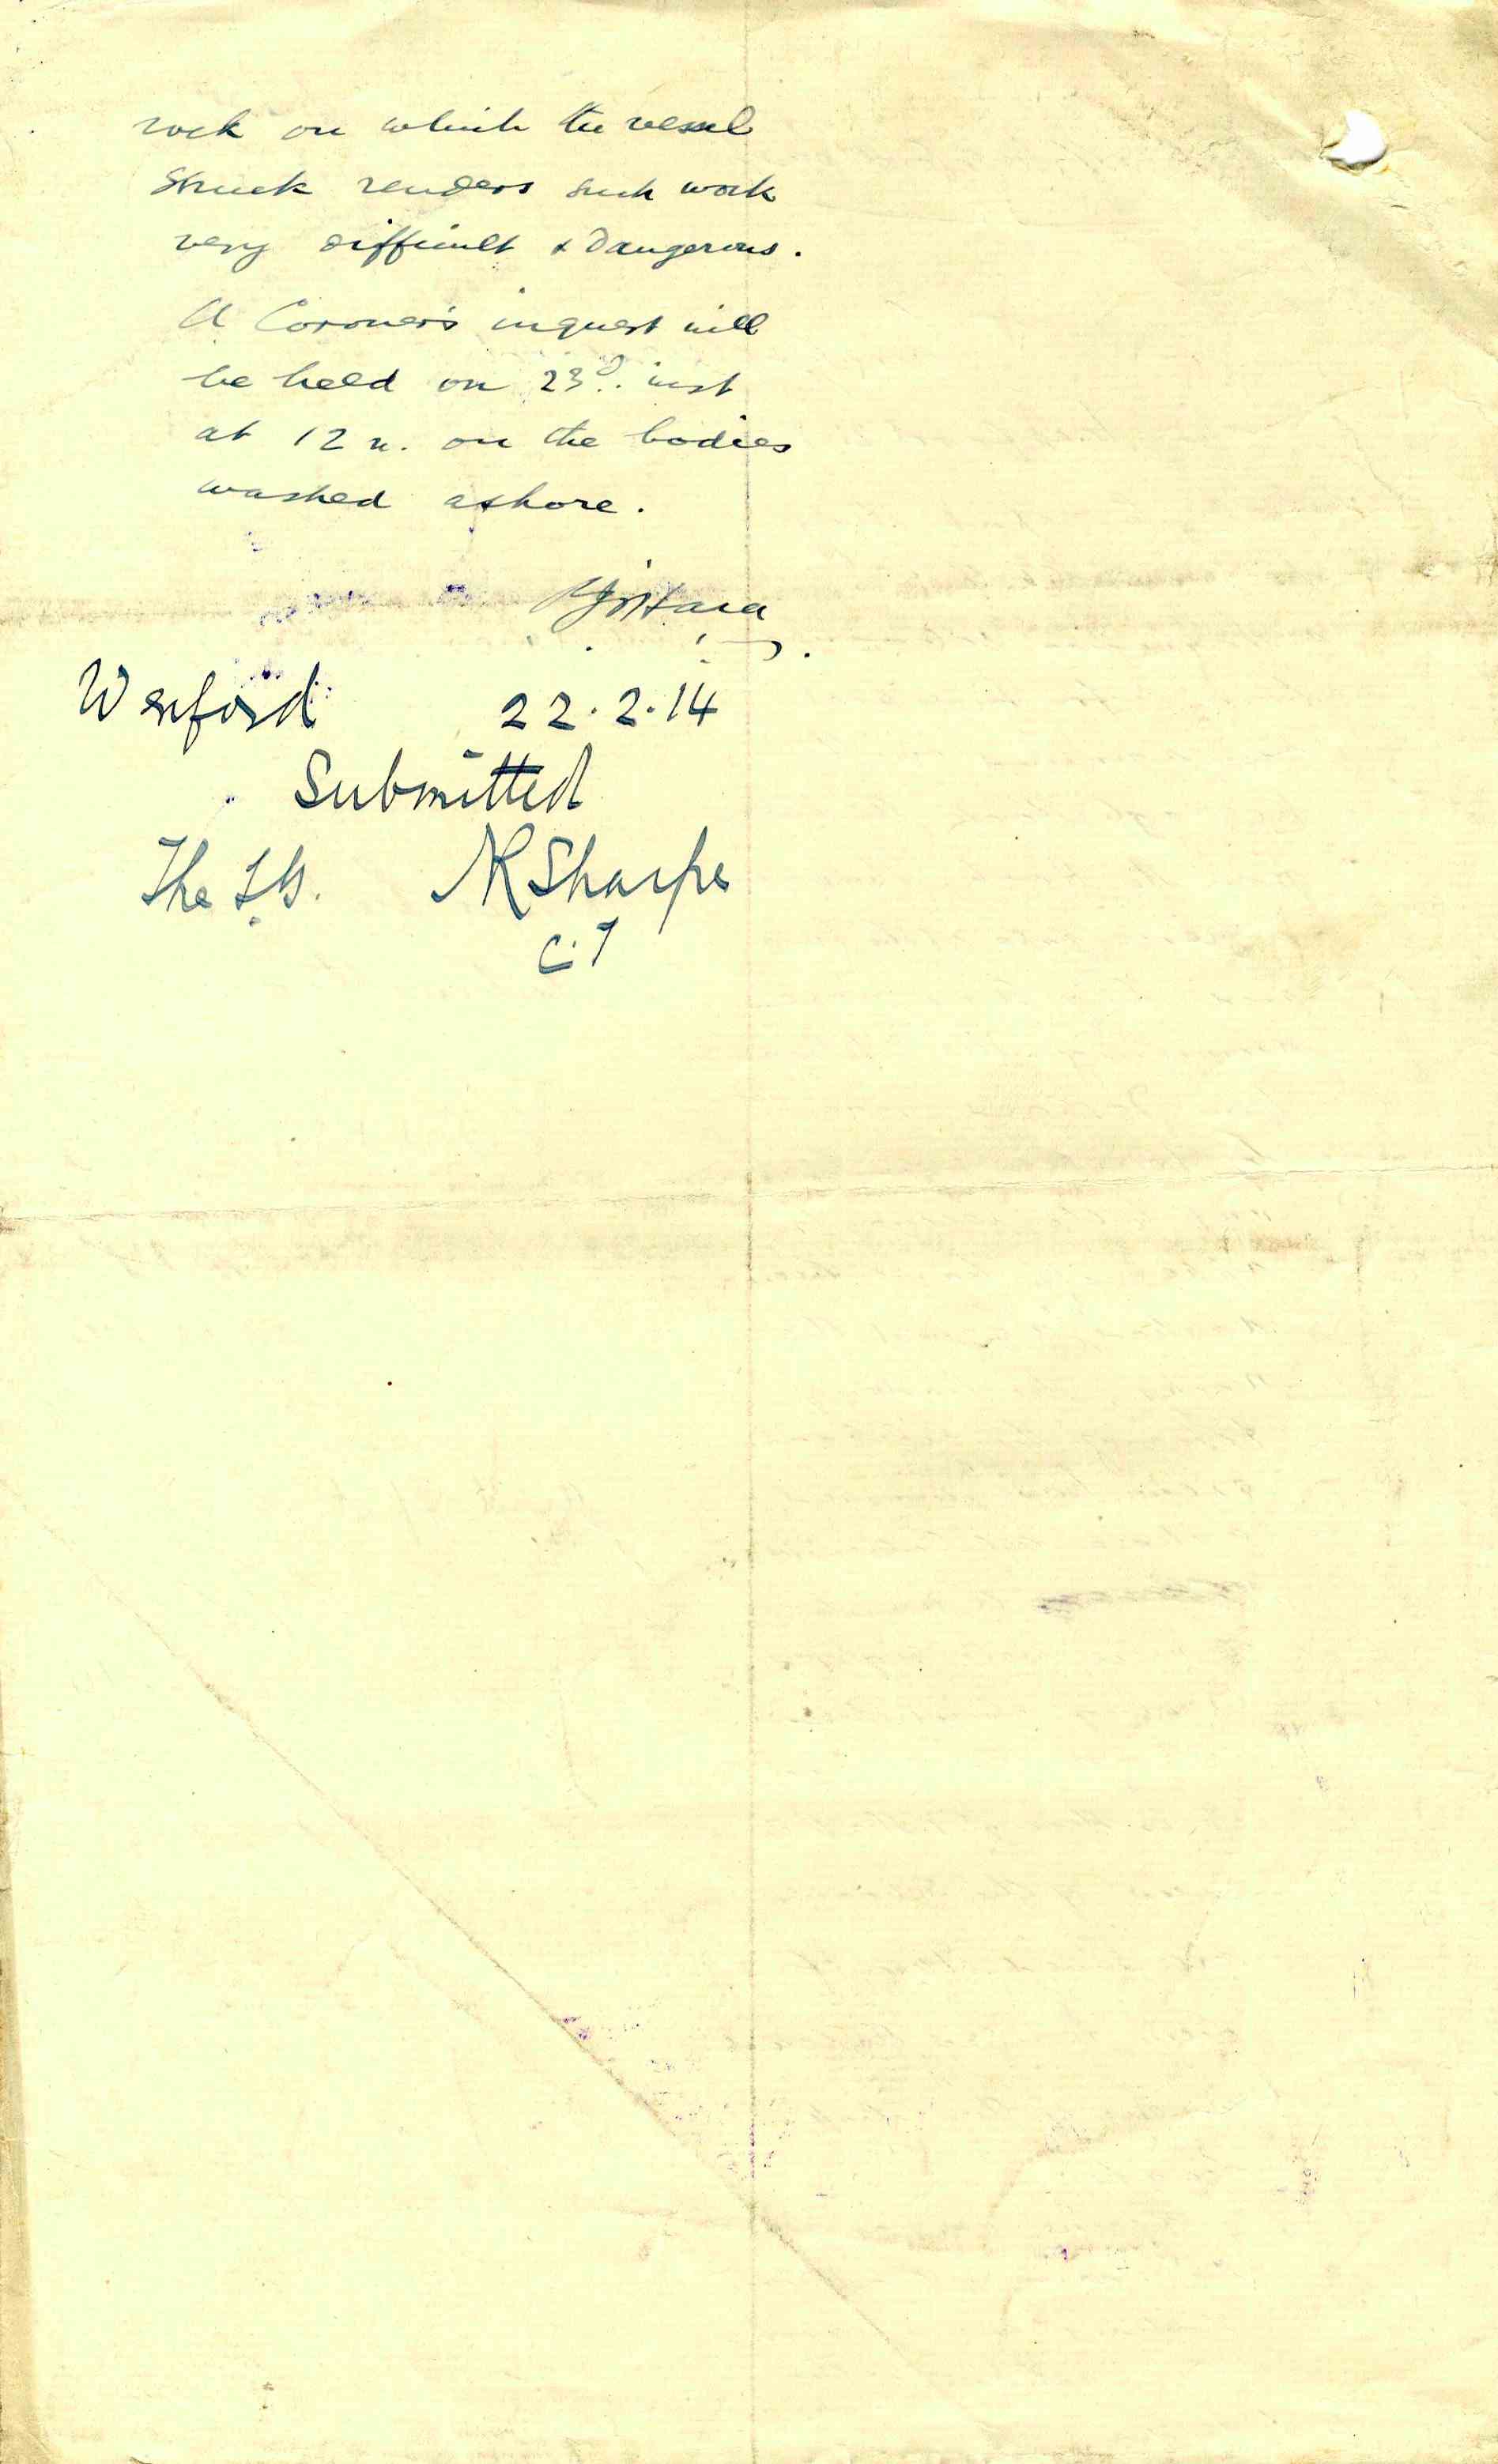 rock on which the vessel
struck renders such work
very difficult & dangerous.
A Coroner's inquest will
be held on 23d. inst
at 12 n. on the bodies
washed ashore.
O'Hara
Wexford 22.2.14
Submitted
The I.G. Sharpe
C.I